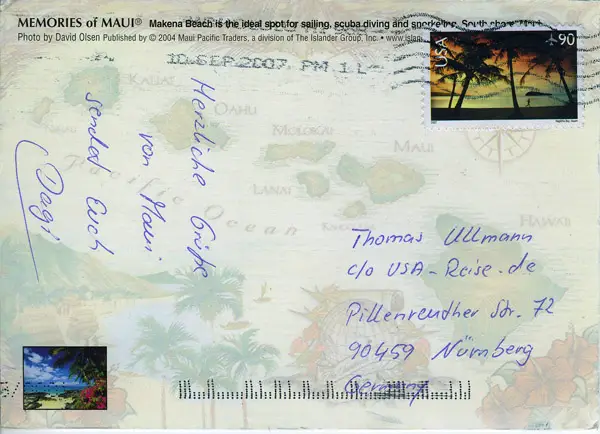 MEMORIES of MAUI® Makena Beach is the ideal spot for sailing, scuba diving and snorkeling. South
Photo by David Olsen Published by © 2004 Maui Pacific Traders, a division of The Islander Group, Inc. • www.islan
10 SEP 2007 PM 1 L
USA
90
KAUAI
OAHU
MOLOKAI
MAUI
LANAI
HAWAII
Pacific Ocean
Herzliche Grüße
von Maui
sendet Euch
Dagi
Thomas Ullmann
c/o USA-Reise.de
Pillenreuther Str. 72
90459 Nürnberg
Germany